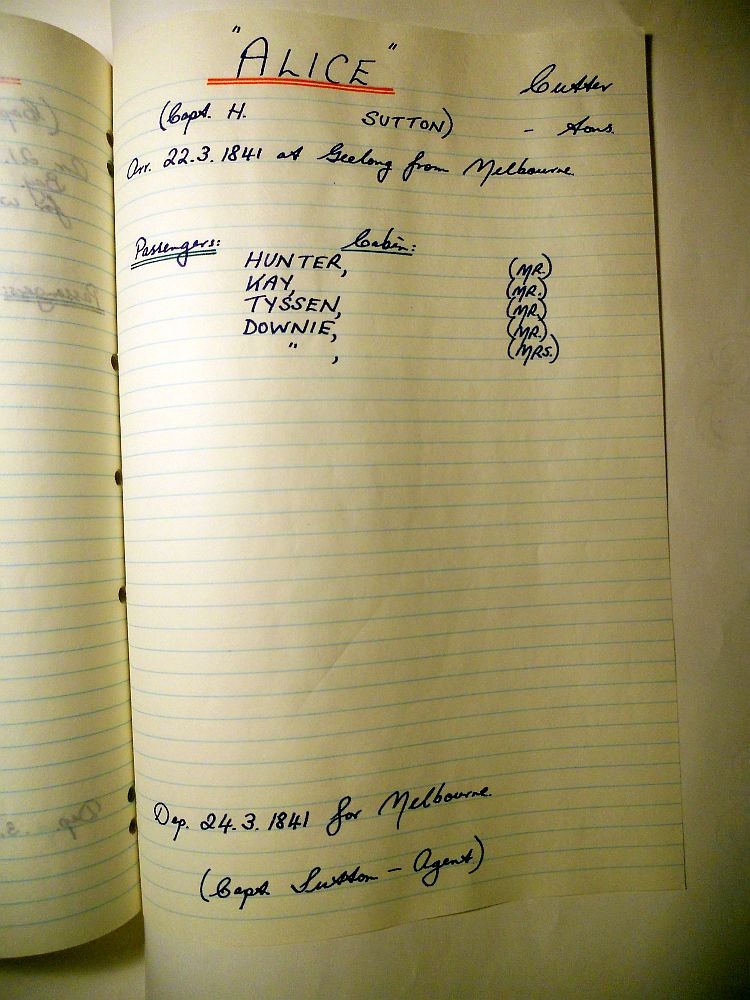 "ALICE"
Cutter
(Capt. H. SUTTON) - tons.
Arr. 22.3.1841 at Geelong from Melbourne.
Passengers: Cabin:
HUNTER, (MR.)
KAY, (MR.)
TYSSEN, (MR.)
DOWNIE, (MR.)
" , (MRS.)
Dep. 24.3.1841 for Melbourne.
(Capt. Sutton - Agent)